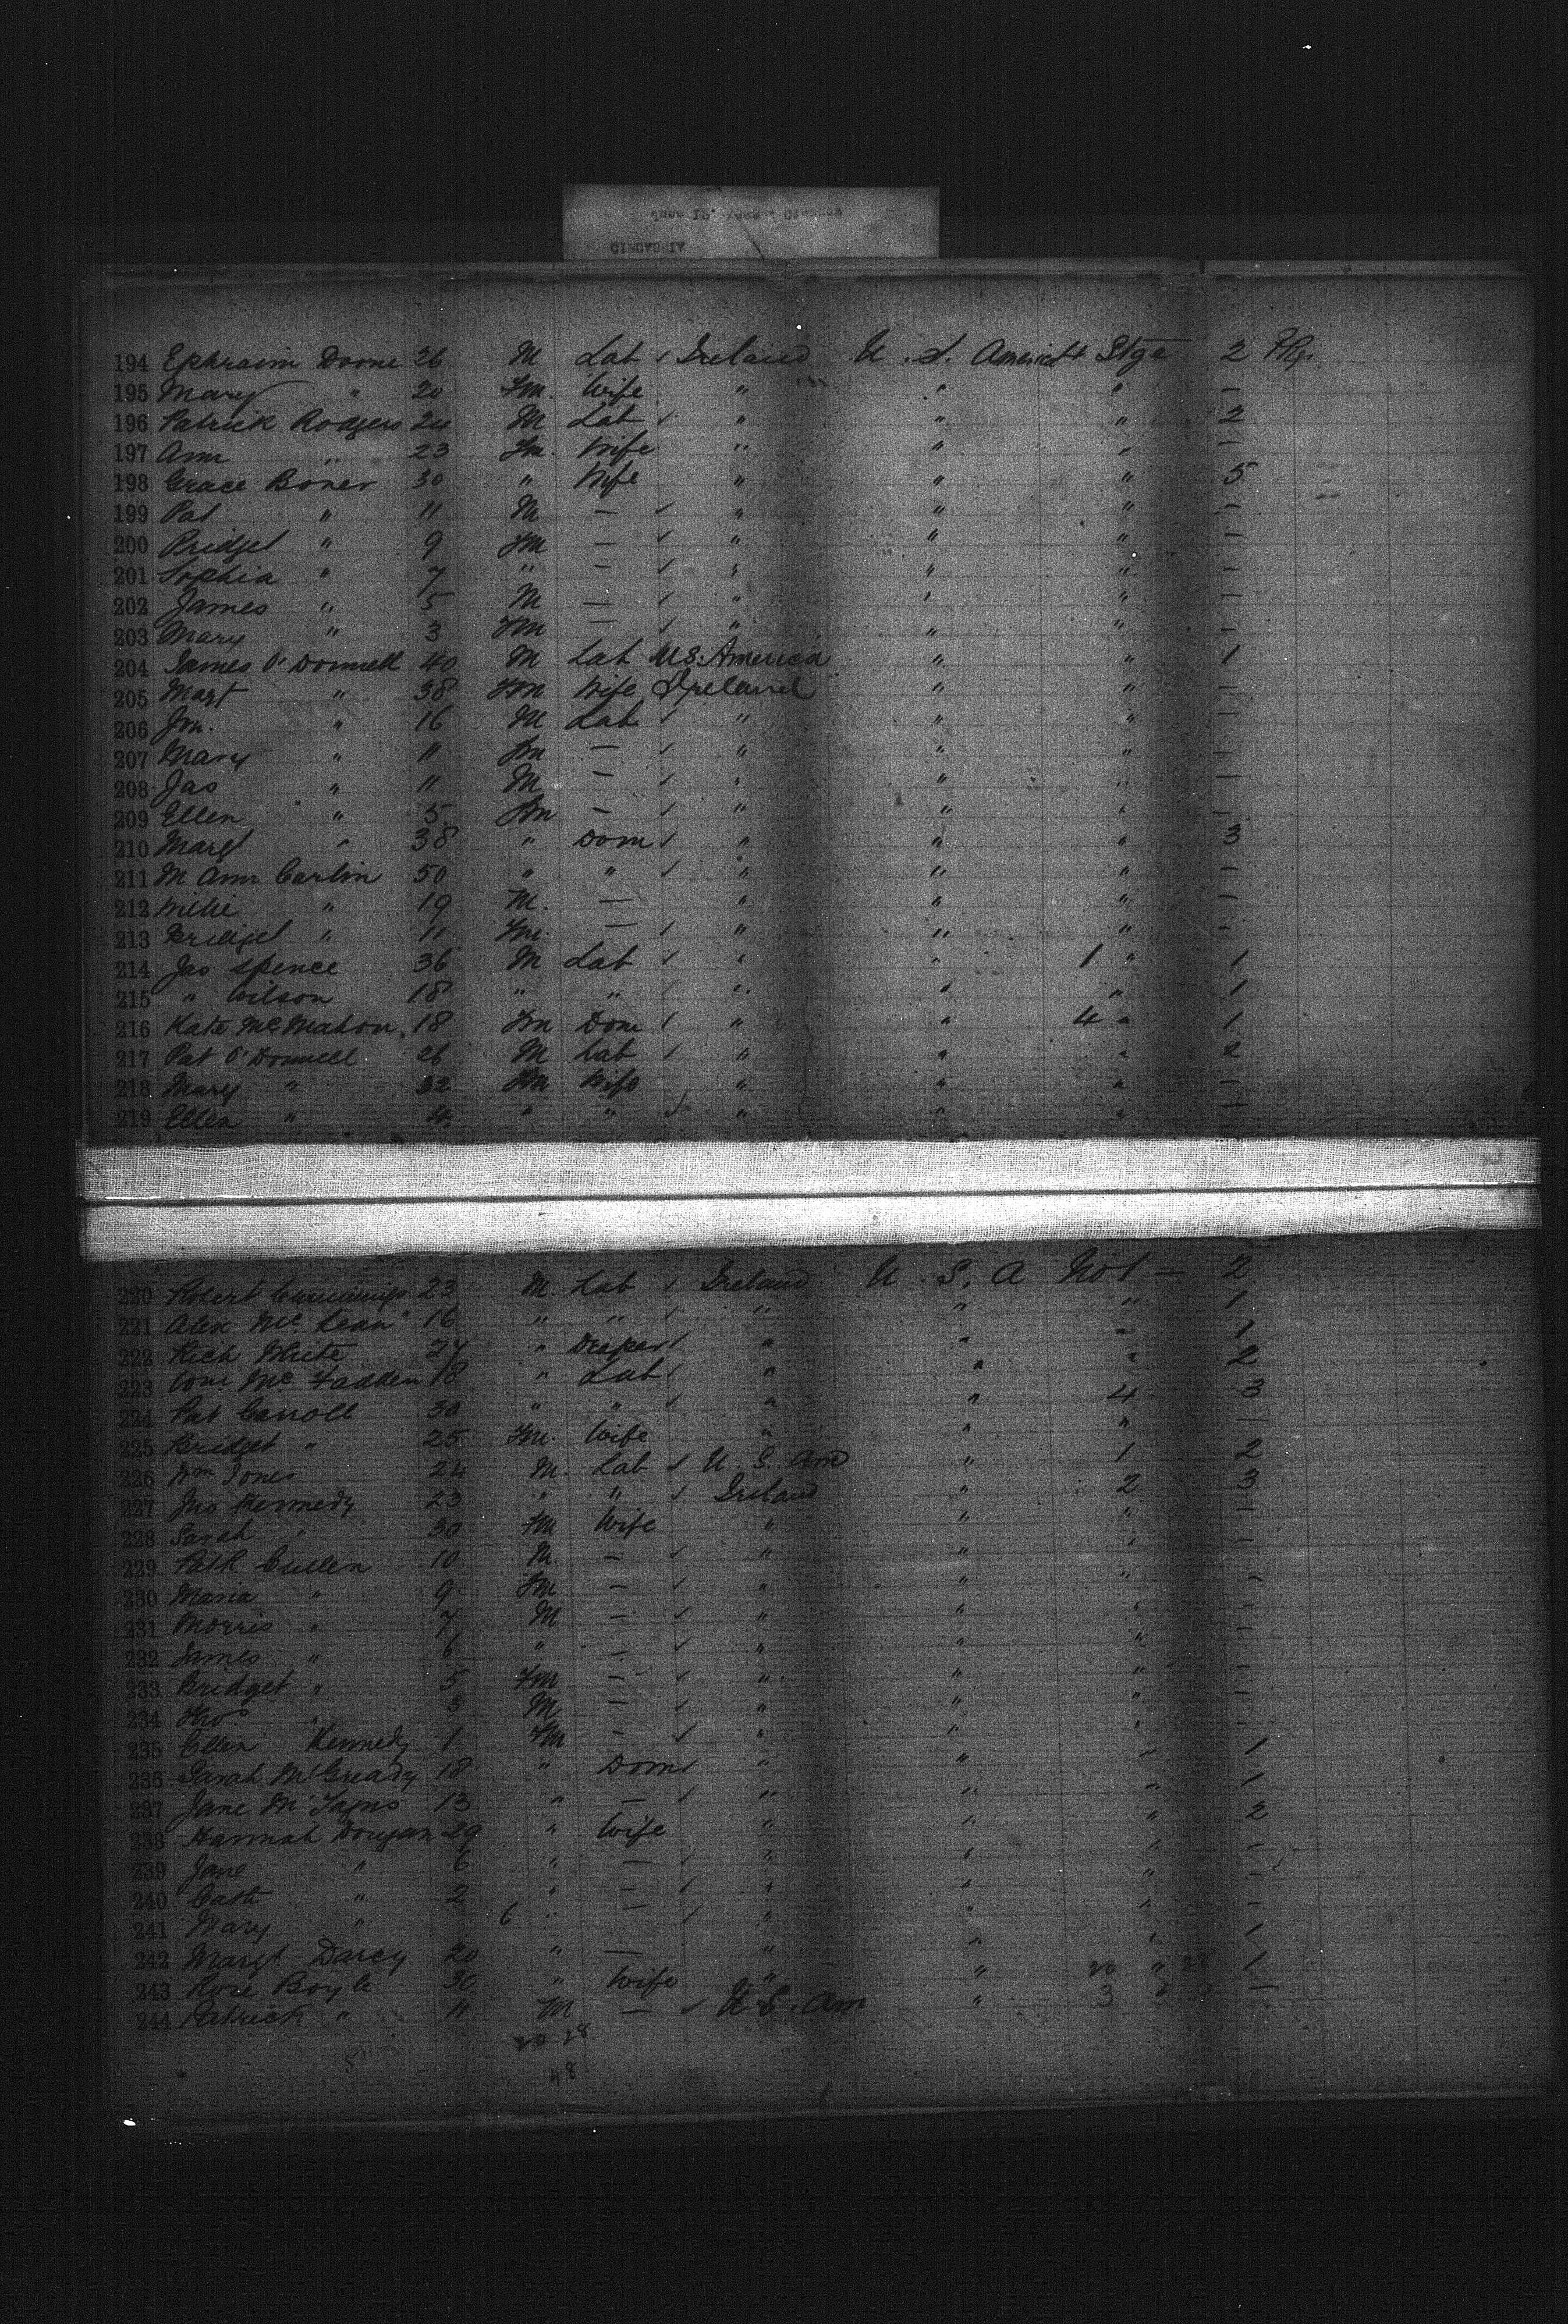 CIRCASSIA
194 Ephraim Doone 26 M Lab ✓ Ireland U. S. America 4 Stge 2 Pkgs
195 Mary " 20 Fm. Wife " " " —
196 Patrick Rodgers 24 M Lab ✓ " " " 2
197 Ann " 23 Fm. Wife " " " —
198 Grace Boner 30 " Wife " " " 5
199 Pat " 11 M — ✓ " " " —
200 Bridget " 9 Fm — ✓ " " " —
201 Sophia " 7 " — ✓ " " " —
202 James " 5 M — ✓ " " " —
203 Mary " 3 Fm — ✓ " " " —
204 James O'Donnell 40 M Lab U.S. America " " 1
205 Margt " 38 Fm Wife Ireland " " —
206 Jn. " 16 M Lab ✓ " " " —
207 Mary " 11 Fm — ✓ " " " —
208 Jas " 11 M — ✓ " " " —
209 Ellen " 5 Fm — ✓ " " " —
210 Margt " 38 " Dom ✓ " " " 3
211 M Ann Carlin 50 " " ✓ " " " —
212 Willie " 19 M. — " " " —
213 Bridget " 11 Fm. — ✓ " " " —
214 Jas Spence 36 M Lab ✓ " " 1 " 1
215 " Wilson 18 " " ✓ " " " 1
216 Kate McMahon 18 Fm Dom ✓ " " 4 " 1
217 Pat O'Donnell 26 M Lab ✓ " " " 2
218 Mary " 32 Fm Wife " " " —
219 Ellen " 4 " " ✓ " " " —
220 Robert Cummings 23 M. Lab ✓ Ireland U. S. A — 2
221 Alex Mc Lean 16 " " ✓ " " " 1
222 Rich White 27 " Draper ✓ " " " 1
223 Mc Fadden 18 " Lab ✓ " " " 2
224 Pat Carroll 30 " " ✓ " " 4 3
225 Bridget " 25 Fm. Wife " " " —
226 Wm Jones 24 M. Lab ✓ U. S. Am " 1 2
227 Jno Kennedy 23 " " ✓ Ireland " 2 3
228 Sarah " 30 Fm Wife " " " —
229 Patk Cullen 10 M. — ✓ " " " —
230 Maria " 9 Fm — ✓ " " " —
231 Morris " 7 M — ✓ " " " —
232 James " 6 " — ✓ " " " —
233 Bridget " 5 Fm — ✓ " " " —
234 Tho " 3 M — ✓ " " " —
235 Ellen Kennedy 1 Fm — ✓ " " "
236 Sarah McGready 18 " Dom ✓ " " " 1
237 Jane 13 " — ✓ " " " 1
238 Hannah Dougan 29 " Wife " " " 2
239 Jane " 6 " — ✓ " " " —
240 Cath " 2 " — ✓ " " " —
241 Mary " 6 " — ✓ " " " —
242 Margt Darcy 20 " — " " " 1
243 Rose Boyle 30 " Wife " " 20 " 28 1
244 Patrick " 11 M — ✓ U. S. Am " 3 —
20 28
48